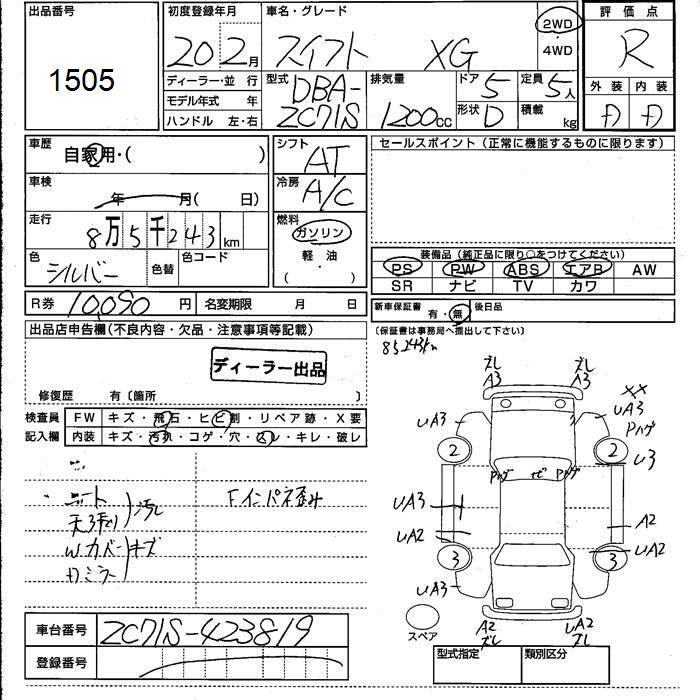 出品番号
1505
初度登録年月
20年2月
車名・グレード
スイフト XG
2WD
・
4WD
評価点
R
外装 内装
D D
ディーラー・並 行
モデル年式 年
ハンドル 左・右
型式
DBA-
ZC71S
排気量
1200cc
ドア 5
形状 D
定員 5人
積載 kg
車歴
自家用・( )
車検
年 月( 日)
走行
8万5千243km
色
シルバー
色替
色コード
シフト
AT
冷房
A/C
燃料
ガソリン
軽・油
( )
セールスポイント(正常に機能するものに限ります)
装備品(純正品に限り○をつけてください)
PS PW ABS エアB AW
SR ナビ TV カワ
R券 10,090円
名変期限 月 日
新車保証書 有・無
後日品
(保証書は事務局へ提出して下さい)
85243km
出品店申告欄(不良内容・欠品・注意事項等記載)
ディーラー出品
修復歴 有〔箇所 〕
検査員
記入欄
FW キズ・飛石・ヒビ割・リペア跡・X要
内装 キズ・汚れ・コゲ・穴・スレ・キレ・破レ
シート
天張り
汚れ
Wカバー
Dミラー
キズ
Fインパネ歪み
ズレ
A3
ズレ
A3
XX
UA3
UA3
Pハゲ
2
2
U3
Pハゲ
ナビ
Pハゲ
UA3
A2
UA2
UA2
3
3
UA3
スペア
A2
ズレ
UA2
ズレ
車台番号 ZC71S-423819
登録番号
型式指定
類別区分